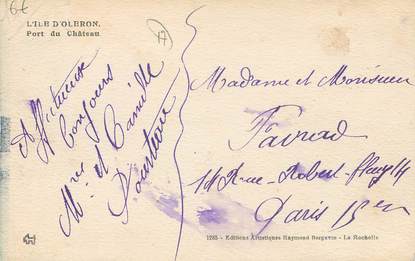 6€
L'ILE D'OLERON.
Port du Château
17
Affectueuse
bonjours
Mme et Camille
Madame et Monsieur
14 Rue Robert-fleury 14
Paris 15em
1285 - Editions Artistiques Raymond Bergevin - La Rochelle